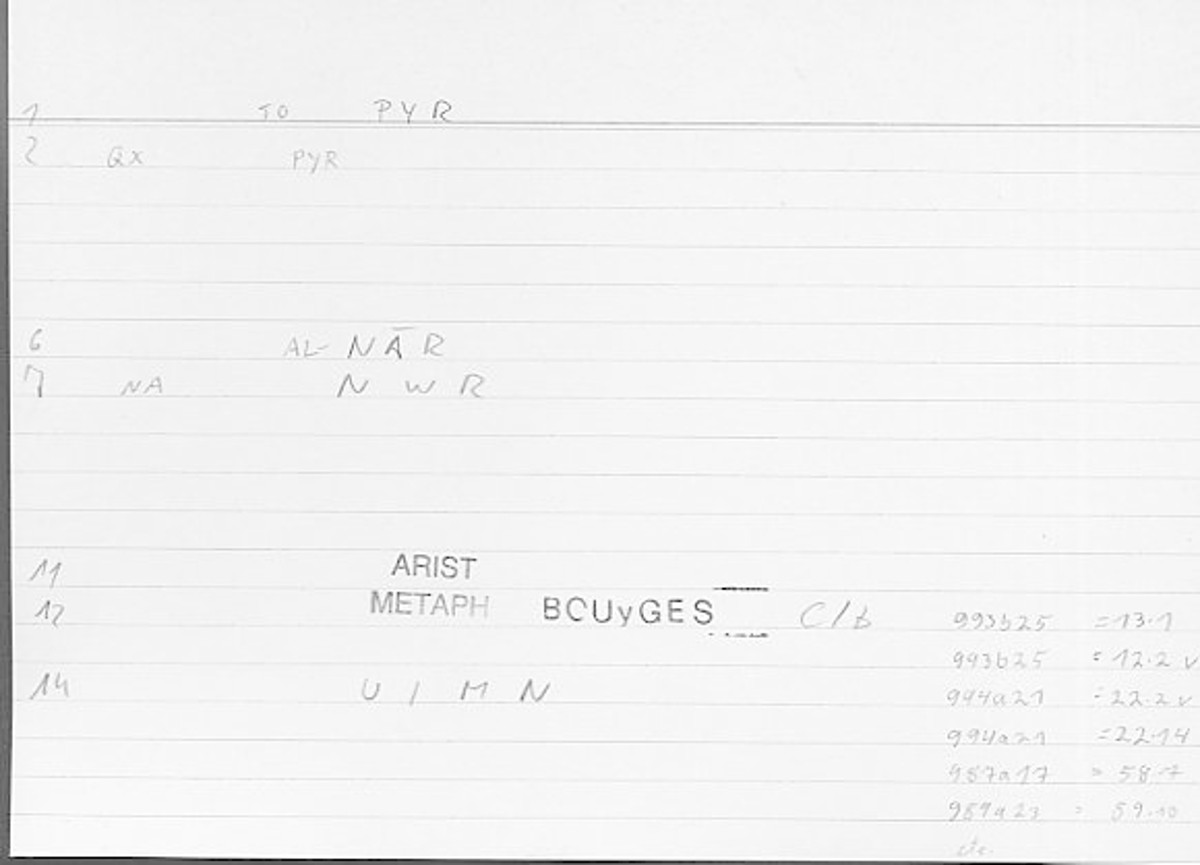 1 TO PYR
2 QX PYR
6 AL-NĀR
7 NA NWR
11 ARIST
12 METAPH BOUyGES C/b 993b25 = 13.1
993b25 = 12.2 v
14 U / M N 994a21 = 22.2 v
994a21 = 22.14
987a17 = 58.7
989a23 = 59.10
etc.